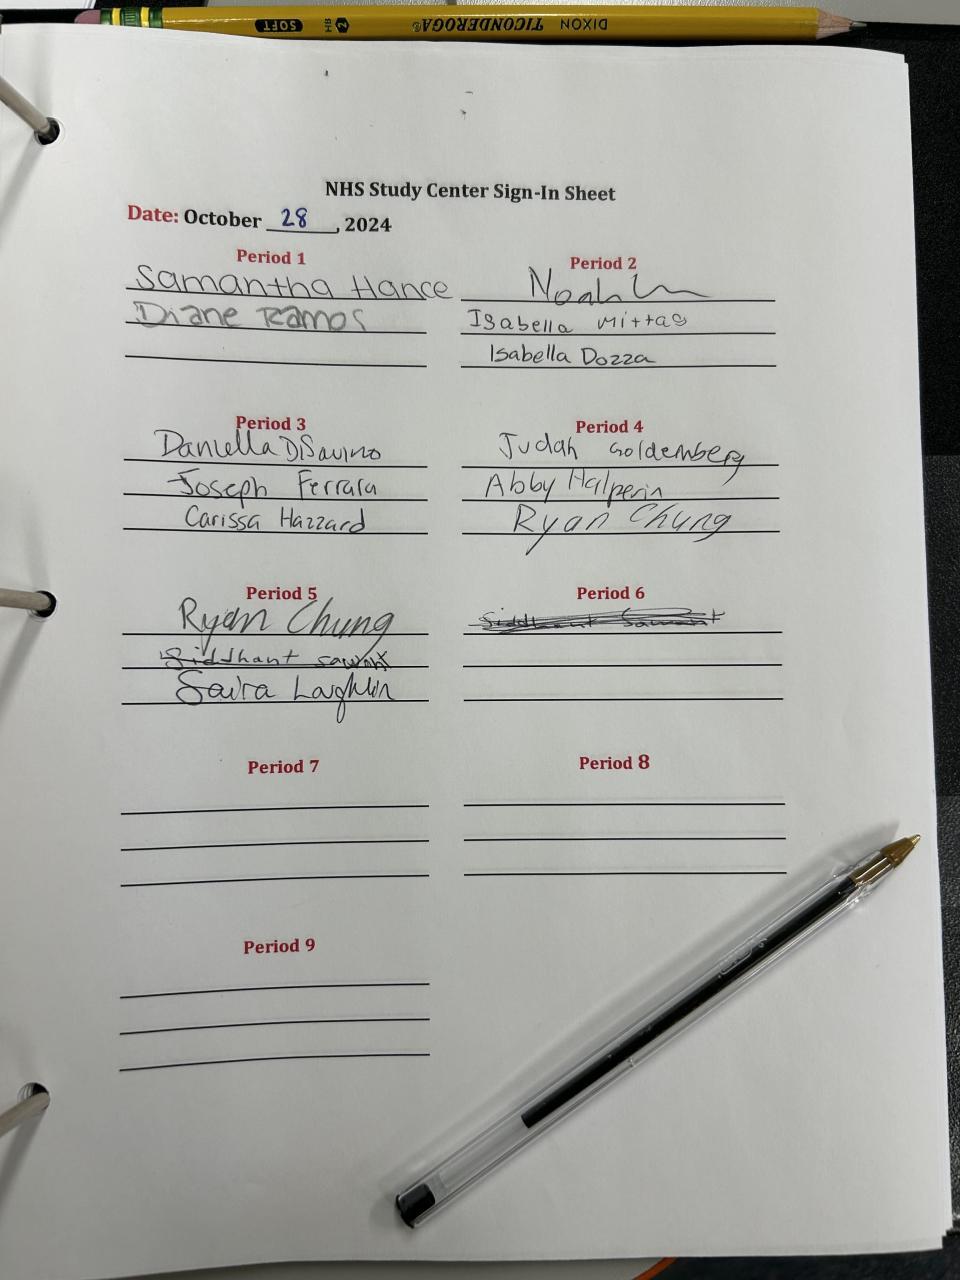 DIXON TICONDEROGA® HB 2 SOFT
NHS Study Center Sign-In Sheet
Date: October 28, 2024
Period 1
Samantha Hance
Diane Ramos
Period 2
Noah
Isabella Mittas
Isabella Dozza
Period 3
Daniella DiSavino
Joseph Ferrara
Carissa Hazzard
Period 4
Judah Goldemberg
Abby Halperin
Ryan Chung
Period 5
Ryan Chung
Siddhant Sawant
Saira Laughlin
Period 6
Siddhant Sawant
Period 7
Period 8
Period 9